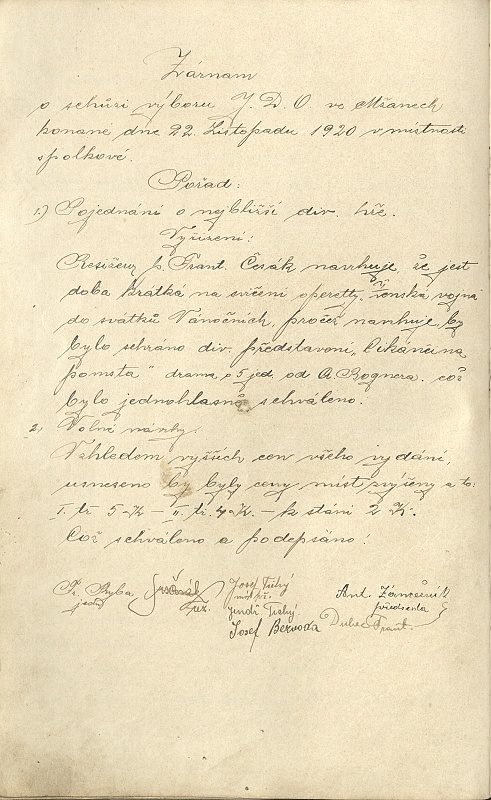 Záznam
o schůzi výboru J. D. O. ve Mžanech
konané dne 22. Listopadu 1920 v místnosti
spolkové.
Pořad:
1.) Pojednání o nejbližší div. hře.
Vyřízení:
Resižeur p. Frant. Čisák navrhuje, že jest
doba krátká na cvičení operetty, "ženská vojna"
do svátků Vánočních, pročež navrhuje, by
bylo sehráno div. představení, "Cikánčina
pomsta" drama o 5 jed. od A. Bognera. což
bylo jednohlasně schváleno.
2, Volné návrhy.
Vzhledem vyšších cen všeho vydání,
usneseno by byly ceny míst zvýšeny a to:
I. tř. 5 K – II. tř. 4 K. – k stání 2 K.
Což schváleno a podepsáno:
Fr. Ryba Josef Tichý Ant. Zámečník
jedn. místř. předseda
Jindř. Tichý
Josef Bezvoda Frant.